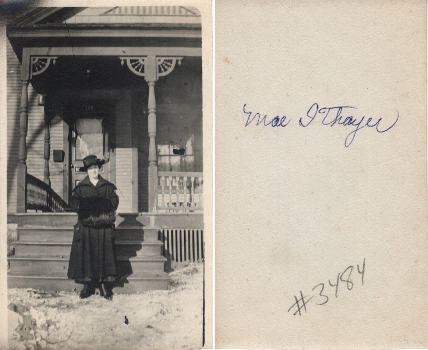 Mae I Thayer
#3484